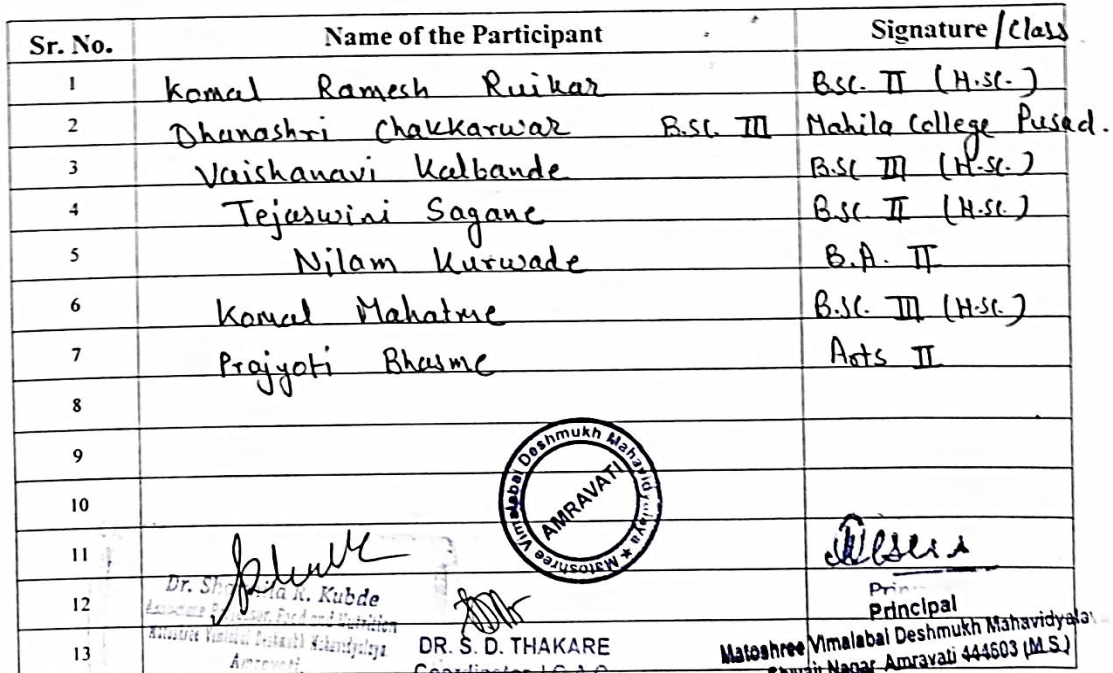 Sr. No. Name of the Participant Signature /Class
1 Komal Ramesh Ruikar B.Sc. II (H.Sc.)
2 Dhanashri Chakkarwar B.Sc. III Mahila College Pusad.
3 Vaishanavi Kalbande B.Sc III (H.Sc.)
4 Tejaswini Sagane B.Sc. II (H.Sc.)
5 Nilam Kurwade B.A. II
6 Komal Mahatme B.Sc. III (H.Sc.)
7 Prajyoti Bhasme Arts II
8
9
10
Matoshree Vimalabai Deshmukh Mahavidyalaya ★
AMRAVATI
11
12
13
Dr. K. Kubde
Food and Nutrition
Amravati.
DR. S. D. THAKARE
Coordinator I.Q.A.C.
Principal
Matoshree Vimalabai Deshmukh Mahavidyalay
Shivaji Nagar, Amravati 444603 (M.S.)